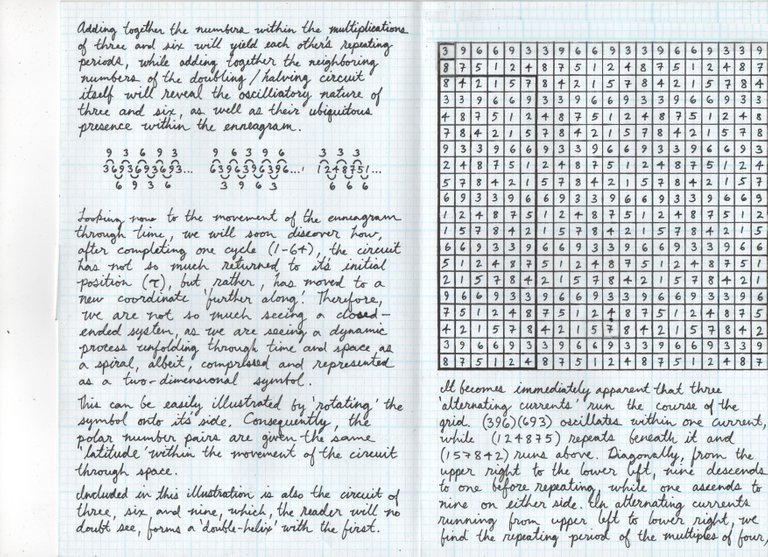 Adding together the numbers within the multiplications
of three and six will yield each other's repeating
periods, while adding together the neighboring
numbers of the doubling / halving circuit
itself will reveal the oscilliatory nature of
three and six, as well as their ubiquitous
presence within the enneagram.
9 3 6 9 3   9 6 3 9 6   3 3 3
3693693693...   6396396396...,   124875 1...
6 9 3 6   3 9 6 3   6 6 6
Looking now to the movement of the enneagram
through time, we will soon discover how,
after completing one cycle (1-64), the circuit
has not so much returned to it's initial
position (τ), but rather, has moved to a
new coordinate 'further along'. Therefore,
we are not so much seeing a closed-
ended system, as we are seeing a dynamic
process unfolding through time and space as
a spiral, albeit, compressed and represented
as a two-dimensional symbol.
This can be easily illustrated by 'rotating' the
symbol onto it's side. Consequently, the
polar number pairs are given the same
'latitude' within the movement of the circuit
through space.
Included in this illustration is also the circuit of
three, six and nine, which, the reader will no
doubt see, forms a 'double-helix' with the first.
3 9 6 6 9 3 3 9 6 6 9 3 3 9 6 6 9 3 3 9
8 7 5 1 2 4 8 7 5 1 2 4 8 7 5 1 2 4 8 7
8 4 2 1 5 7 8 4 2 1 5 7 8 4 2 1 5 7 8 4
3 3 9 6 6 9 3 3 9 6 6 9 3 3 9 6 6 9 3 3
4 8 7 5 1 2 4 8 7 5 1 2 4 8 7 5 1 2 4 8
7 8 4 2 1 5 7 8 4 2 1 5 7 8 4 2 1 5 7 8
9 3 3 9 6 6 9 3 3 9 6 6 9 3 3 9 6 6 9 3
2 4 8 7 5 1 2 4 8 7 5 1 2 4 8 7 5 1 2 4
5 7 8 4 2 1 5 7 8 4 2 1 5 7 8 4 2 1 5 7
6 9 3 3 9 6 6 9 3 3 9 6 6 9 3 3 9 6 6 9
1 2 4 8 7 5 1 2 4 8 7 5 1 2 4 8 7 5 1 2
1 5 7 8 4 2 1 5 7 8 4 2 1 5 7 8 4 2 1 5
6 6 9 3 3 9 6 6 9 3 3 9 6 6 9 3 3 9 6 6
5 1 2 4 8 7 5 1 2 4 8 7 5 1 2 4 8 7 5 1
2 1 5 7 8 4 2 1 5 7 8 4 2 1 5 7 8 4 2 1
9 6 6 9 3 3 9 6 6 9 3 3 9 6 6 9 3 3 9 6
7 5 1 2 4 8 7 5 1 2 4 8 7 5 1 2 4 8 7 5
4 2 1 5 7 8 4 2 1 5 7 8 4 2 1 5 7 8 4 2
3 9 6 6 9 3 3 9 6 6 9 3 3 9 6 6 9 3 3 9
8 7 5 1 2 4 8 7 5 1 2 4 8 7 5 1 2 4 8 7
It becomes immediately apparent that three
'alternating currents' run the course of the
grid. (396)(693) oscillates within one current,
while (124875) repeats beneath it and
(157842) runs above. Diagonally, from the
upper right to the lower left, nine descends
to one before repeating, while one ascends to
nine on either side. In alternating currents
running from upper left to lower right, we
find the repeating period of the multiples of four,